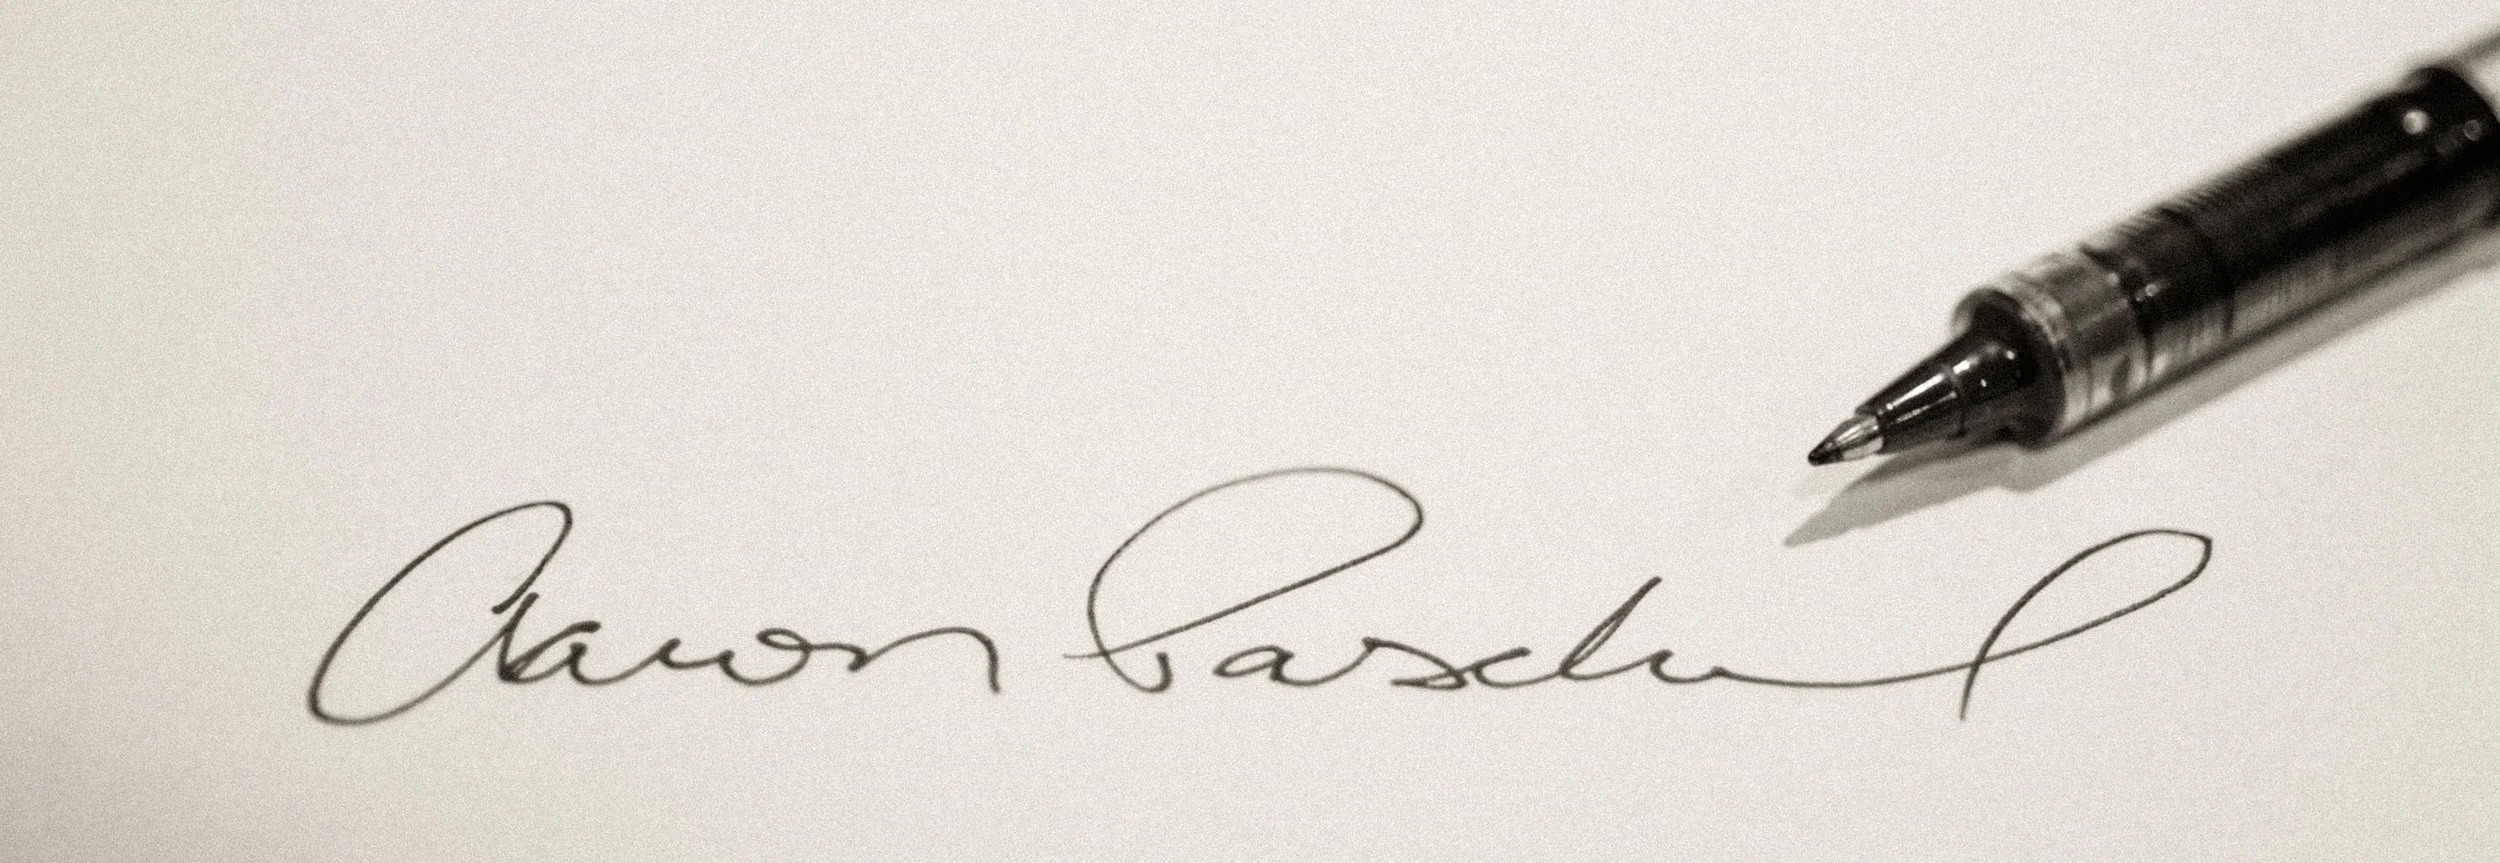 Aaron Paschal